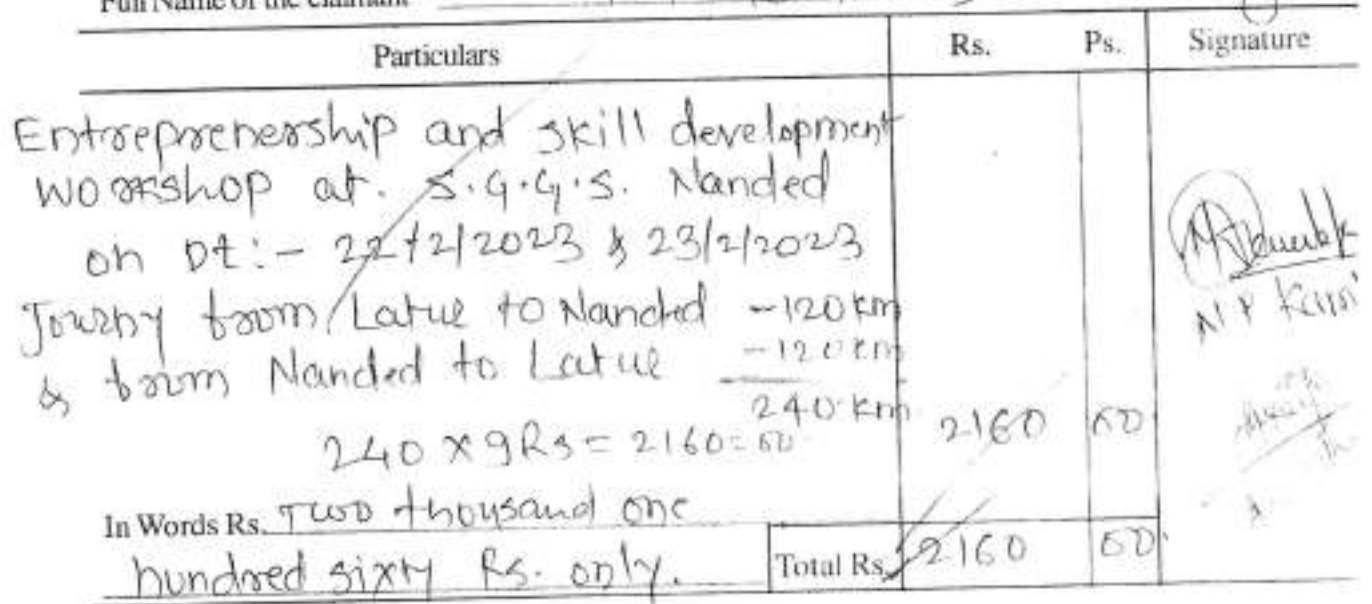 Full Name of the claimant
Particulars Rs. Ps. Signature
Entreprenership and skill development
workshop at. S.G.G.S. Nanded
on Dt:- 22/2/2023 & 23/2/2023
Journy from Latur to Nanded -120 km
& from Nanded to Latur -120 km
240 km
240 x 9Rs = 2160=00 2160 00
In Words Rs. Two thousand one
hundred sixty Rs. only. Total Rs. 2160 00